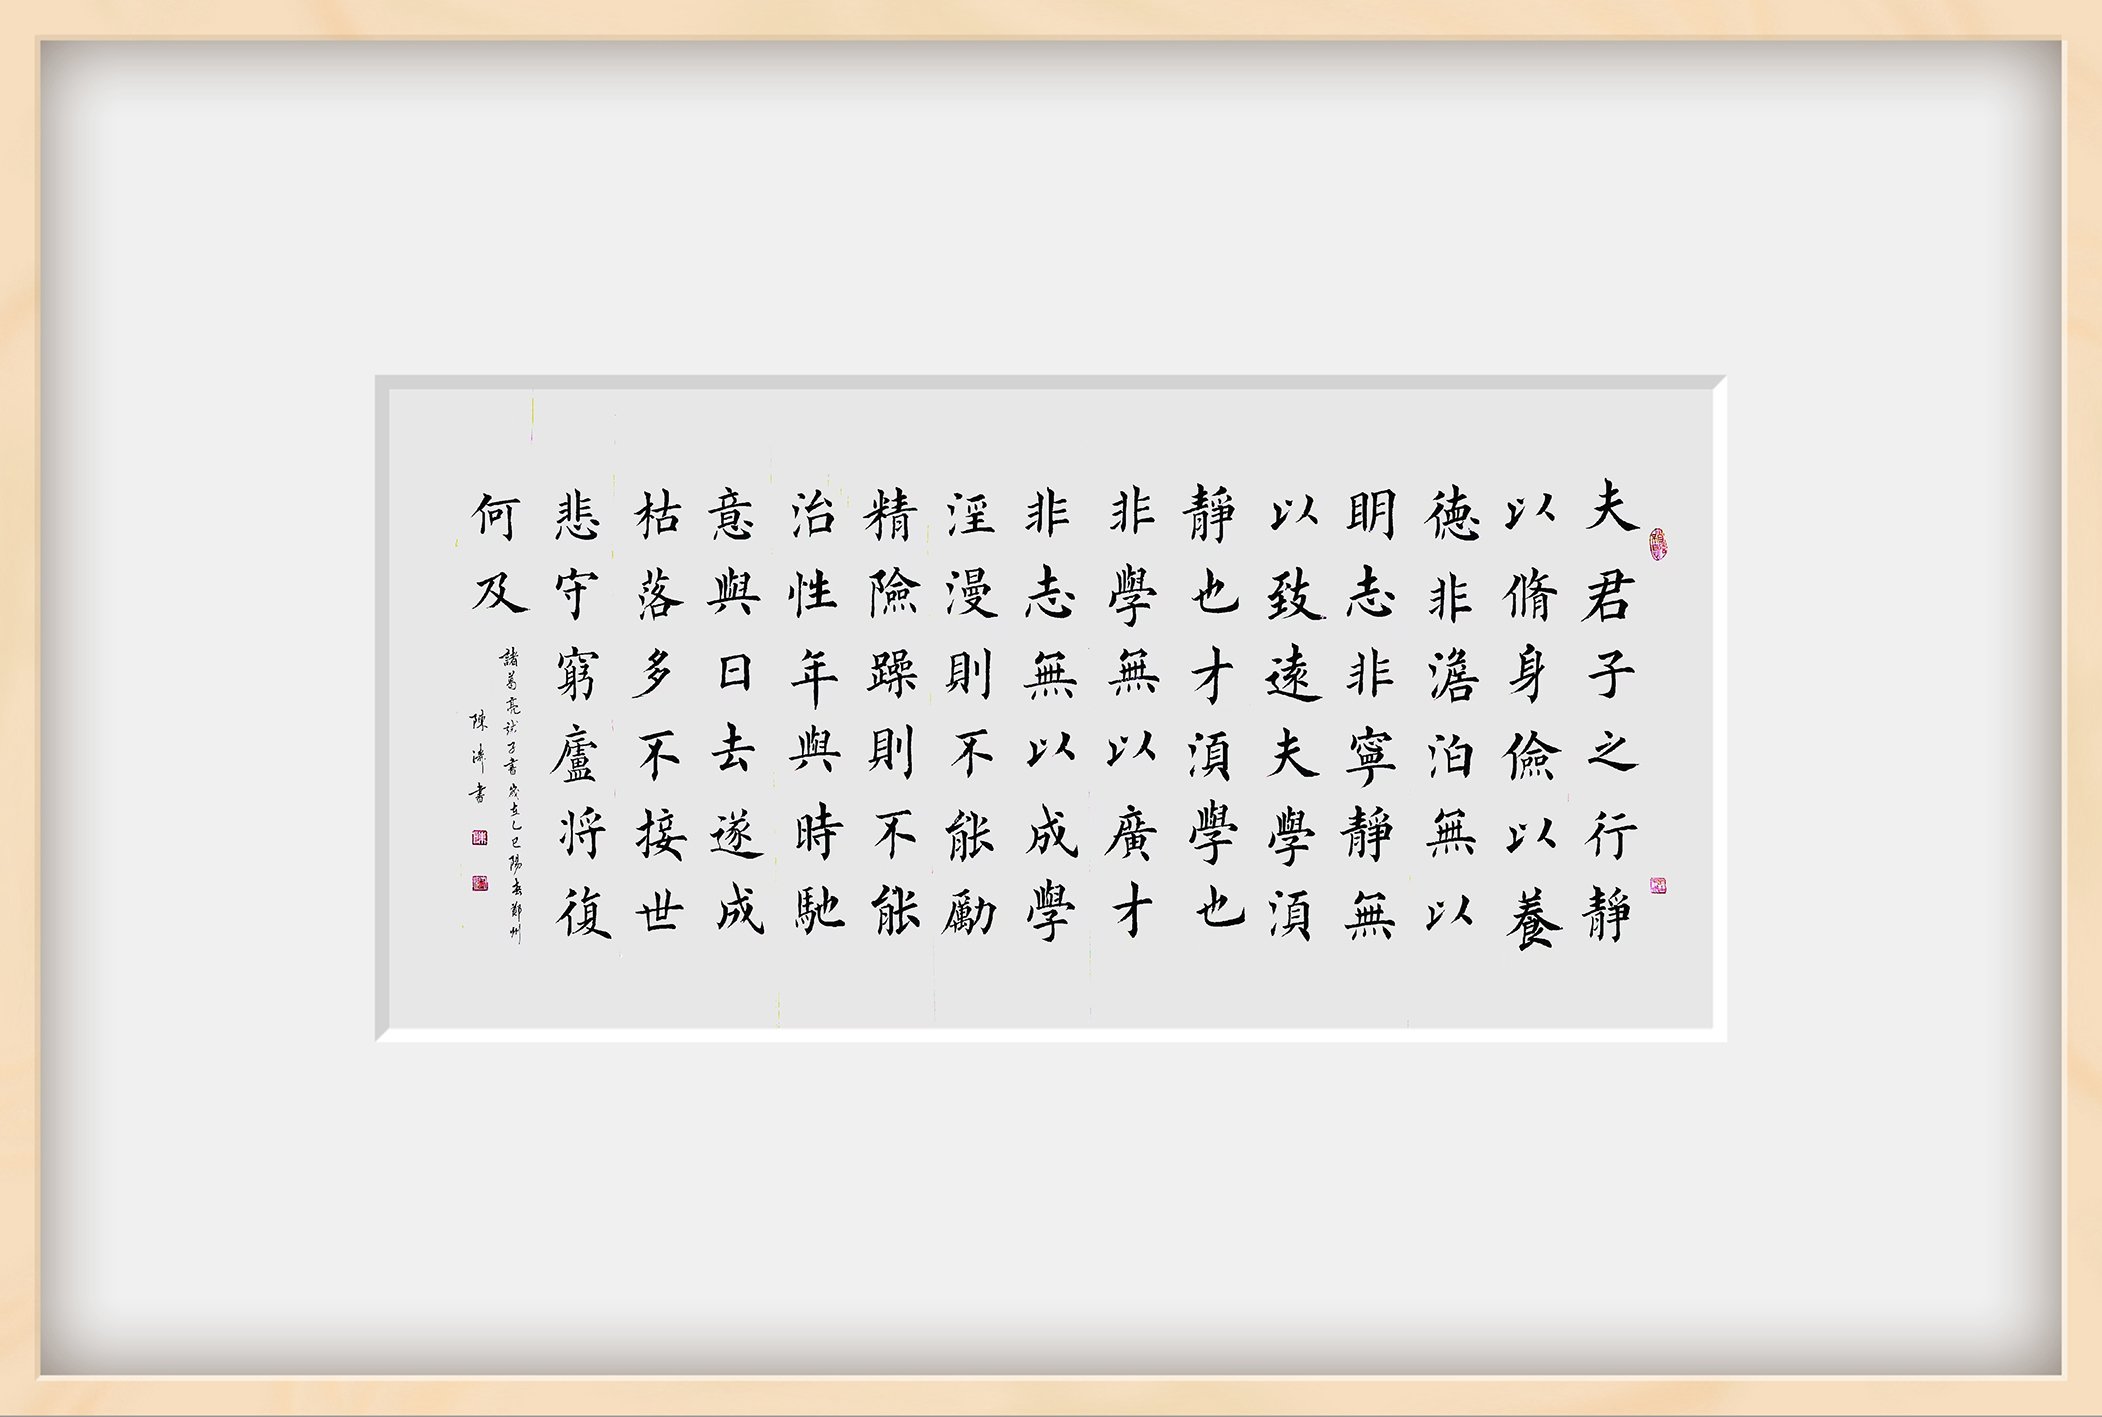 夫君子之行靜
以脩身儉以養
德非澹泊無以
明志非寧靜無
以致遠夫學須
靜也才須學也
非學無以廣才
非志無以成學
淫漫則不能勵
精險躁則不能
治性年與時馳
意與日去遂成
枯落多不接世
悲守窮廬將復
何及
諸葛亮誡子書歲在乙巳陽春鄭州
陳濟書